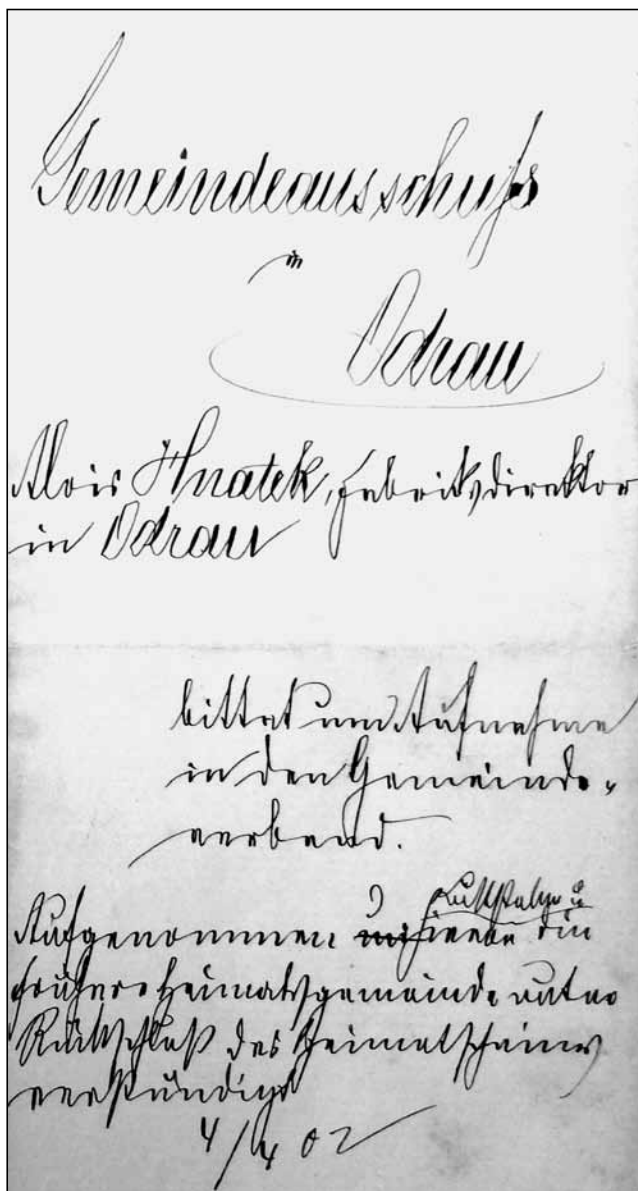 Gemeindeausschuß
in
Odrau
Alois Hnatek, Fabriksdirektor
in Odrau
bittet um Aufnahme
in den Gemeinde-
verband.
Aufgenommen die
frühere Heimatsgemeinde unter
des Heimatscheines
verständigt
4/4 02